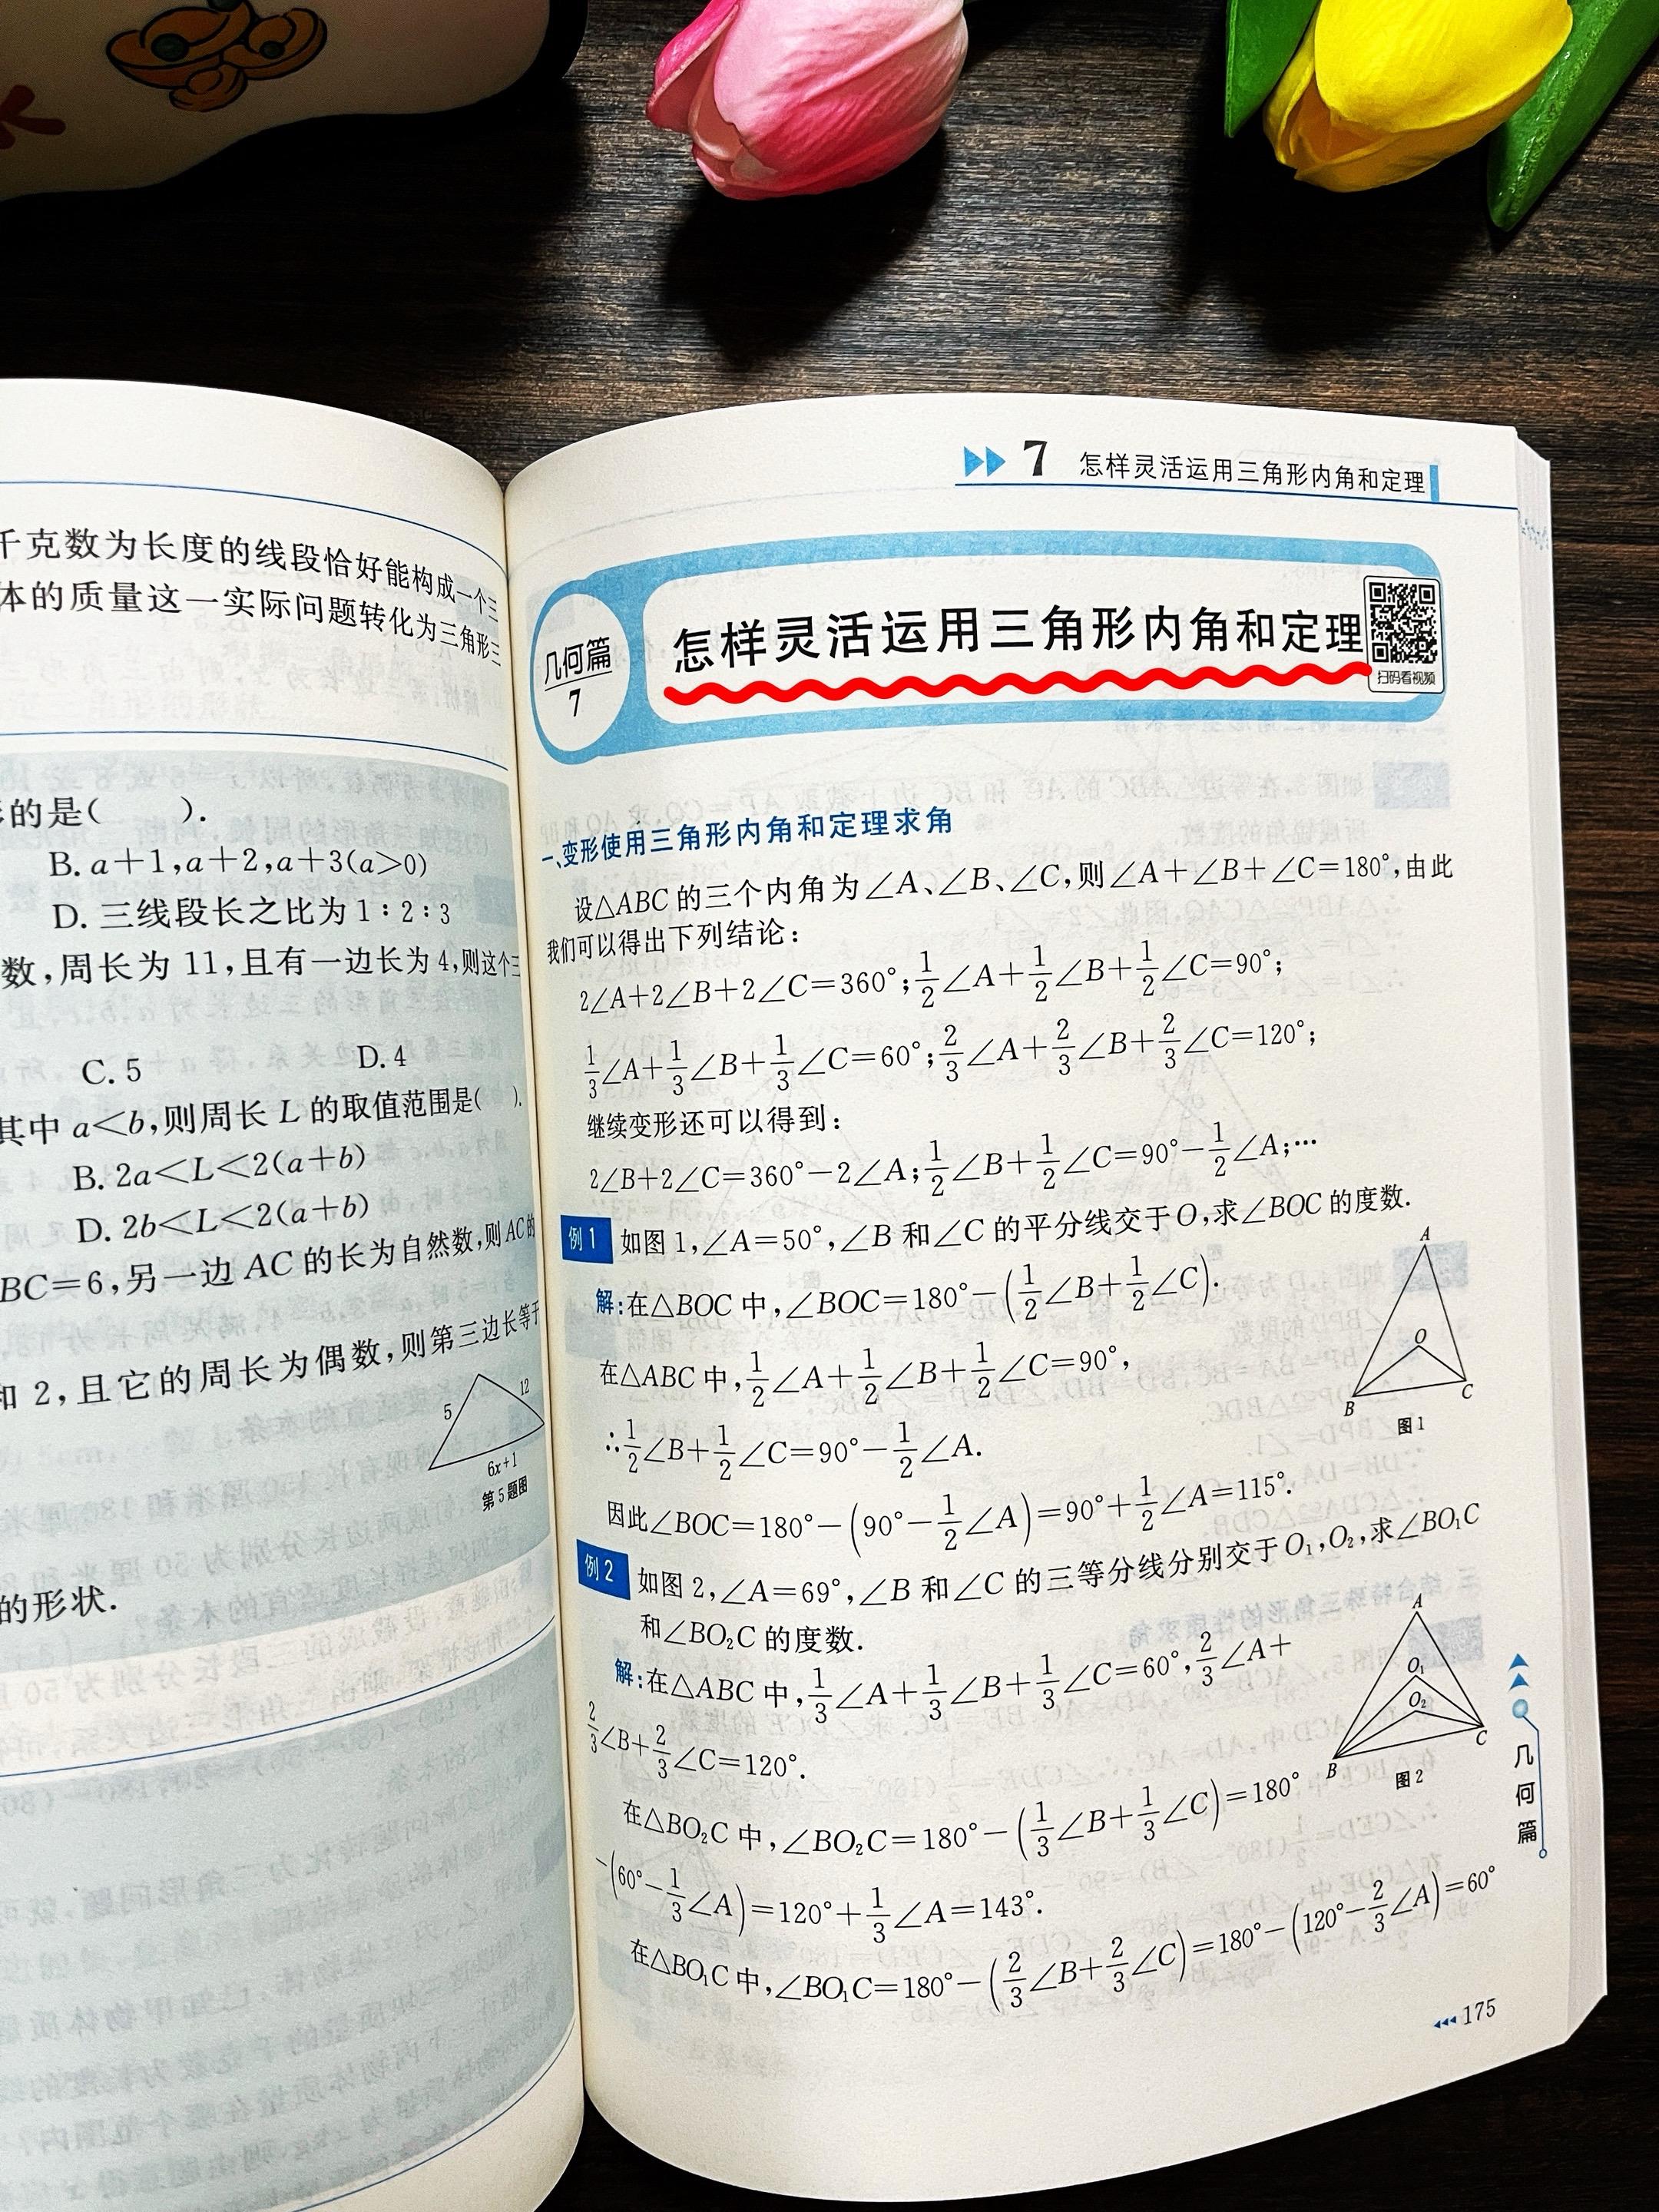 千克数为长度的线段恰好能构成一个三
体的质量这一实际问题转化为三角形三
形的是(　　).
B. a+1,a+2,a+3(a>0)
D. 三线段长之比为1∶2∶3
数,周长为 11,且有一边长为 4,则这个三
C. 5　　D. 4
其中 a<b,则周长 L 的取值范围是(　　).
B. 2a<L<2(a+b)
D. 2b<L<2(a+b)
BC=6,另一边 AC 的长为自然数,则AC的
和 2,且它的周长为偶数,则第三边长等于
5
12
6x+1
第5题图
的形状.
7 怎样灵活运用三角形内角和定理
几何篇
7
怎样灵活运用三角形内角和定理
扫码看视频
一、变形使用三角形内角和定理求角
设△ABC 的三个内角为∠A、∠B、∠C,则∠A+∠B+∠C=180°,由此
我们可以得出下列结论:
2∠A+2∠B+2∠C=360°;1/2∠A+1/2∠B+1/2∠C=90°;
1/3∠A+1/3∠B+1/3∠C=60°;2/3∠A+2/3∠B+2/3∠C=120°;
继续变形还可以得到:
2∠B+2∠C=360°−2∠A;1/2∠B+1/2∠C=90°−1/2∠A;…
例1 如图1,∠A=50°,∠B 和∠C 的平分线交于O,求∠BOC 的度数.
解:在△BOC 中,∠BOC=180°−(1/2∠B+1/2∠C).
在△ABC 中,1/2∠A+1/2∠B+1/2∠C=90°,
∴1/2∠B+1/2∠C=90°−1/2∠A.
因此∠BOC=180°−(90°−1/2∠A)=90°+1/2∠A=115°.
A
O
B
C
图1
例2 如图 2,∠A=69°,∠B 和∠C 的三等分线分别交于O₁,O₂,求∠BO₁C
和∠BO₂C 的度数.
解:在△ABC 中,1/3∠A+1/3∠B+1/3∠C=60°,2/3∠A+
2/3∠B+2/3∠C=120°.
在△BO₂C 中,∠BO₂C=180°−(1/3∠B+1/3∠C)=180°
−(60°−1/3∠A)=120°+1/3∠A=143°.
在△BO₁C 中,∠BO₁C=180°−(2/3∠B+2/3∠C)=180°−(120°−2/3∠A)=60°
A
O₁
O₂
B
C
图2
几何篇
175